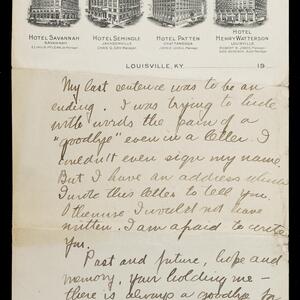 HOTEL SAVANNAH
SAVANNAH
HOTEL SEMINOLE
JACKSONVILLE
CHAS. G. DAY, MANAGER
HOTEL PATTEN
CHATTANOOGA
HOTEL
HENRY WATTERSON
LOUISVILLE
ROBERT B. JONES, MANAGER
LOUISVILLE, KY. 19
My last sentence was to be an
ending. I was trying to hide
with words the pain of a
"goodbye" even in a letter. I
couldn't even sign my name.
But I have an address which
I wrote this letter to tell you.
Otherwise I would not have
written. I am afraid to write
you.
Past and future, hope and
memory, your holding me—
there is always a goodbye to